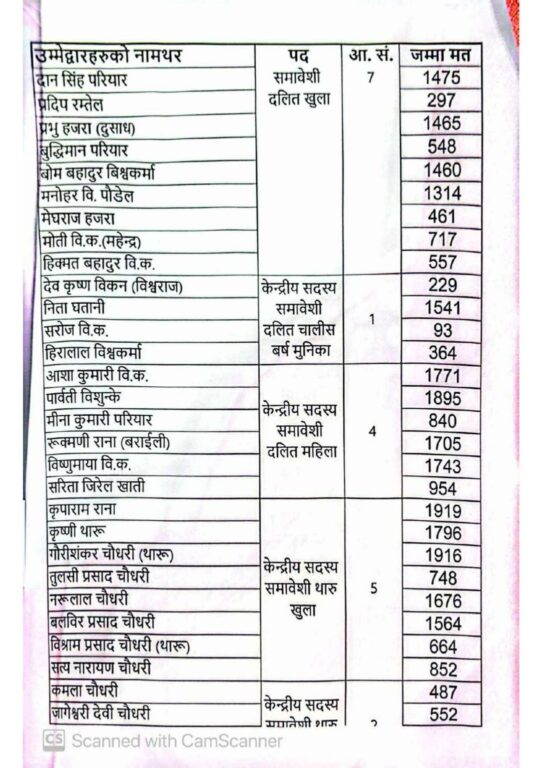 उम्मेद्वारहरुको नामथर पद आ. सं. जम्मा मत
दान सिंह परियार समावेशी 7 1475
प्रदिप रम्तेल दलित खुला 297
प्रभु हजरा (दुसाध) 1465
बुद्धिमान परियार 548
बोम बहादुर बिश्वकर्मा 1460
मनोहर वि. पौडेल 1314
मेघराज हजरा 461
मोती वि.क.(महेन्द्र) 717
हिक्मत बहादुर वि.क. 557
देव कृष्ण विकन (विश्वराज) केन्द्रीय सदस्य 229
निता घतानी समावेशी 1 1541
सरोज वि.क. दलित चालीस 93
हिरालाल विश्वकर्मा बर्ष मुनिका 364
आशा कुमारी वि.क. 1771
पार्वती विशुन्के केन्द्रीय सदस्य 1895
मीना कुमारी परियार समावेशी 4 840
रूक्मणी राना (बराईली) दलित महिला 1705
विष्णुमाया वि.क. 1743
सरिता जिरेल खाती 954
कृपाराम राना 1919
कृष्णी थारू 1796
गोरीशंकर चौधरी (थारू) केन्द्रीय सदस्य 1916
तुलसी प्रसाद चौधरी समावेशी थारु 5 748
नरूलाल चौधरी खुला 1676
बलविर प्रसाद चौधरी 1564
विश्राम प्रसाद चौधरी (थारू) 664
सत्य नारायण चौधरी 852
कमला चौधरी केन्द्रीय सदस्य 487
जागेश्वरी देवी चौधरी समावेशी थारु 2 552
CS Scanned with CamScanner